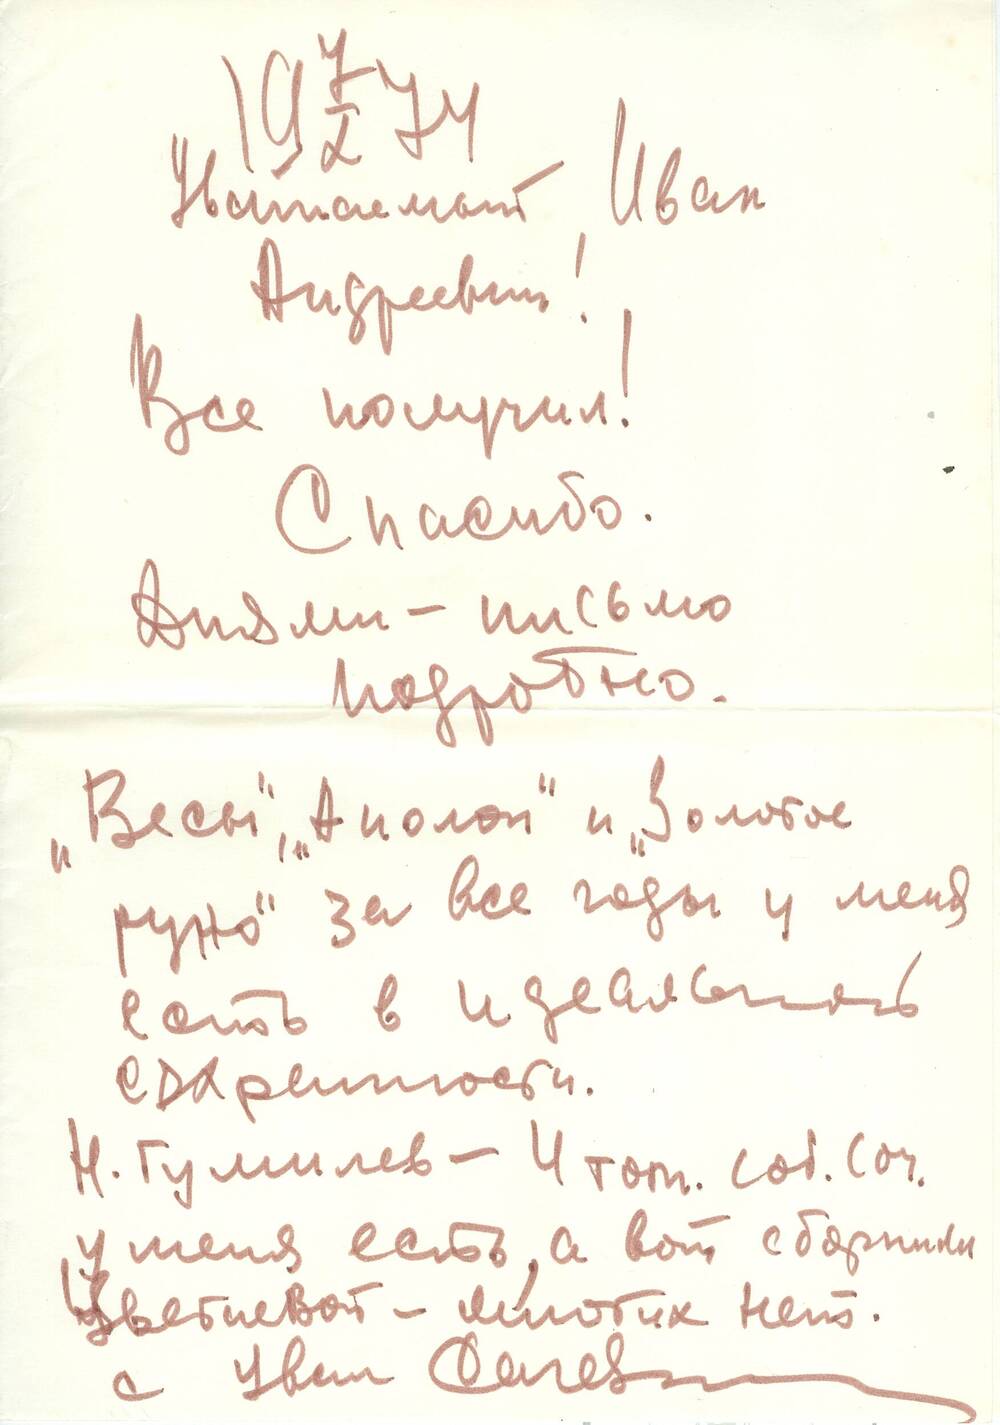 19 7/X 74
Уважаемый Иван
Андреевич!
Все получил!
Спасибо.
Днями — письмо
подробно.
„Весы“, „Аполон“ и „Золотое
руно“ за все годы у меня
есть в идеальной
сохранности.
Н. Гумилев — 4 том. соб. соч.
у меня есть, а вот сборники
Цветаевой — многих нет.
с уваж